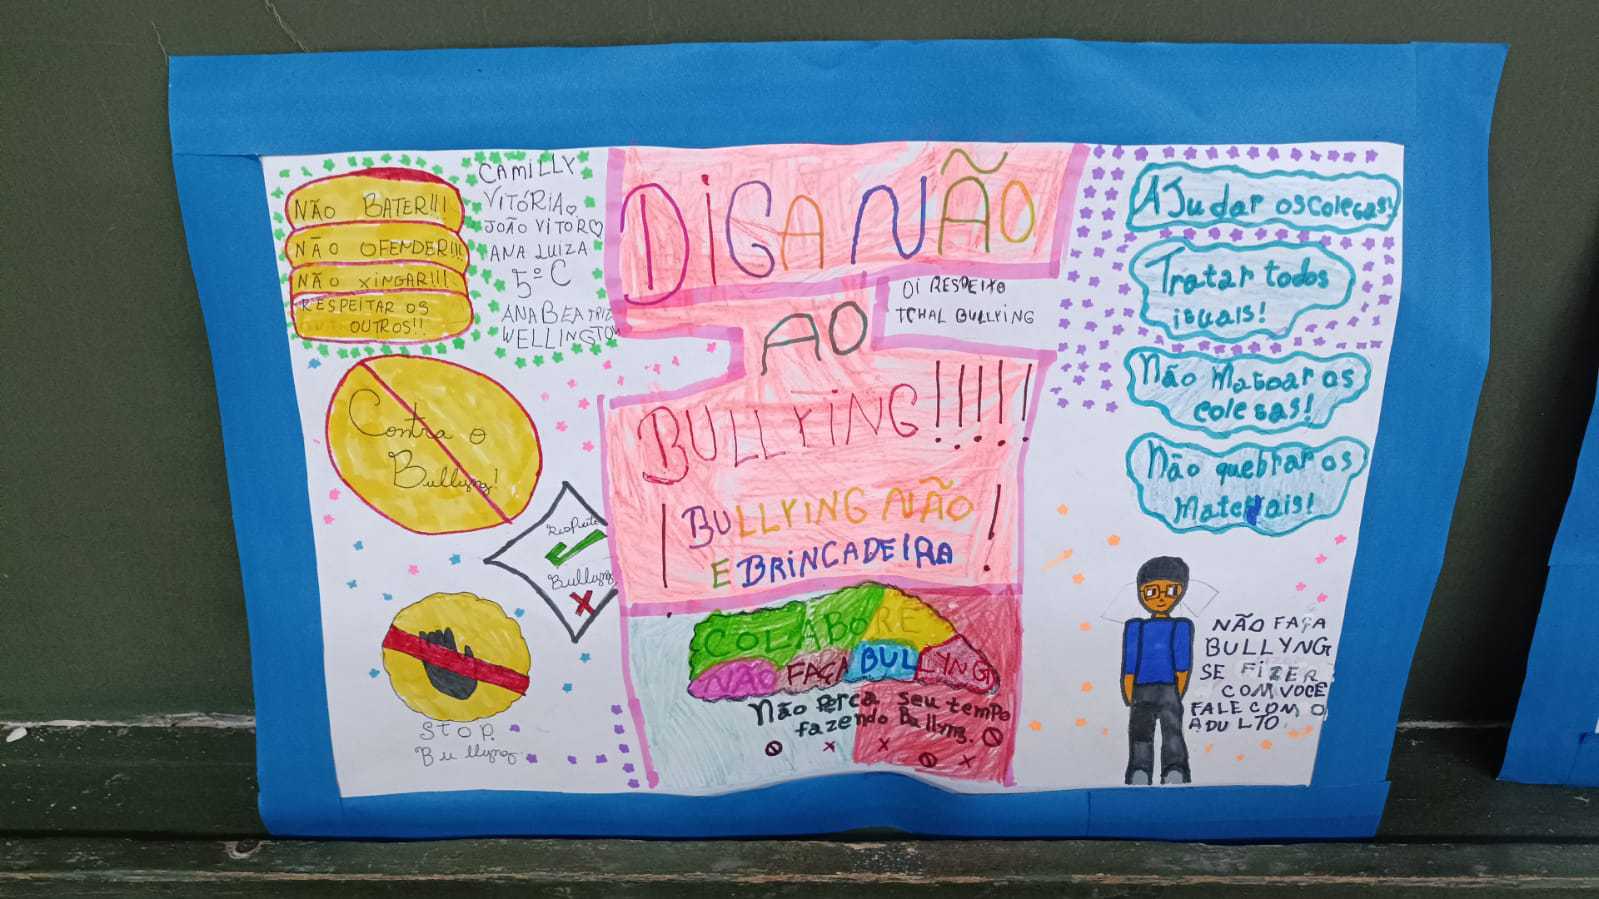 NÃO BATER!!!
NÃO OFENDER!!!
NÃO XINGAR!!!
RESPEITAR OS
OUTROS!!
CAMILLY
VITÓRIA
JOÃO VITOR
ANA LUIZA
5º C
ANA BEATRIZ
WELLINGTON
Contra o
Bullyng!
Respeito
Bullyng
STOP.
Bullyng
DIGA NÃO
AO
BULLYING!!!!!
! BULLYING NÃO !
E BRINCADEIRA
OI RESPEITO
TCHAL BULLYING
COLABORE
NÃO FAÇA BULLYNG
Não perca seu tempo
fazendo Bullyng.
AJudar os colegas!
Tratar todos
iguais!
Não Magoar os
colegas!
Não quebrar os
Materiais!
NÃO FAÇA
BULLYNG
SE FIZER
COM VOCÊ
FALE COM O
ADULTO.